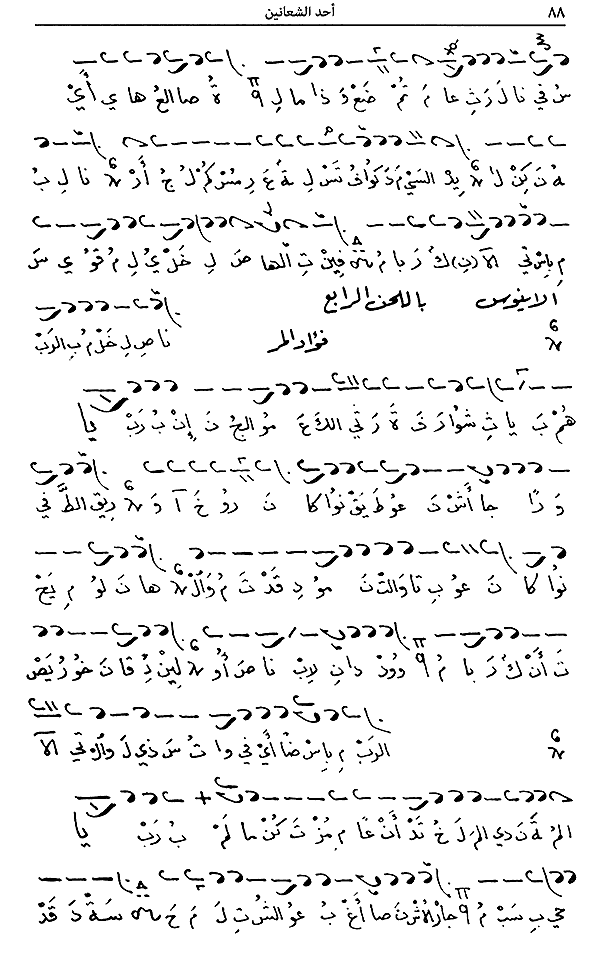 ٨٨ أحد الشعانين
سُ في نا لَ رَثِ عا مَ تُمْ ضَعْ وَ ذا ما لِ ةُ صا العُ ها ي أَيْ
هُ نَ كِنْ لَا يِد السَيْ مَ دَ كوا فُ تَسْ لِ ةً عَ رِ مُسْ كُمْ لُ جُ أَرْ نا لِ بُ
مِ بِاسْ تي الآ كُ رَ با مُ فِينَ تِ الْها صَ لِ خَلْ يُ لِ مُ قُوْ ي سَ
إلاينوس باللحن الرابع
فؤاد المر ناصِ لِ خَلْ مُ بِ الرَبْ
هُمْ بَ يا ثِ شُوا رَ فَ ةَ رَ ثي الكَ عَ مُو الجُ نَ إِنْ بُ رَبْ يا
وَ رًا جا أَشْ نَ عُو طَ يَقْ نُوا كا نَ رُو خَ آ وَ رِيقِ الطَّ في
نُوا كا نَ عُو بِ تا وَالتْ نَ مُو دِ قَدْ تَ مُ وَالْ ها نَ لُو مِ يَحْ
تَ أَنْ كُ رَ با مُ وُودْ دا نِ لابْ نا صَ أُو لِيْنَ ذِ قا نَ خُو رُ يَصْ
الرَبْ مِ بِاسْ ضًا أَيْ في وا تُ سَ ذي لَ وَالْ تي الآ
المَ ةَ نَ دي المَ لَ خُ تَدْ أَنْ عًا مِ مُزْ تَ كُنْ ما لَمْ بُ رَبْ يا
حي بِ سَبْ مُ جارِ الأَشْ نَ صا أَغْ بُ عُو الشُ تِ لَ مَ حَ سَةَ دَ قَدْ